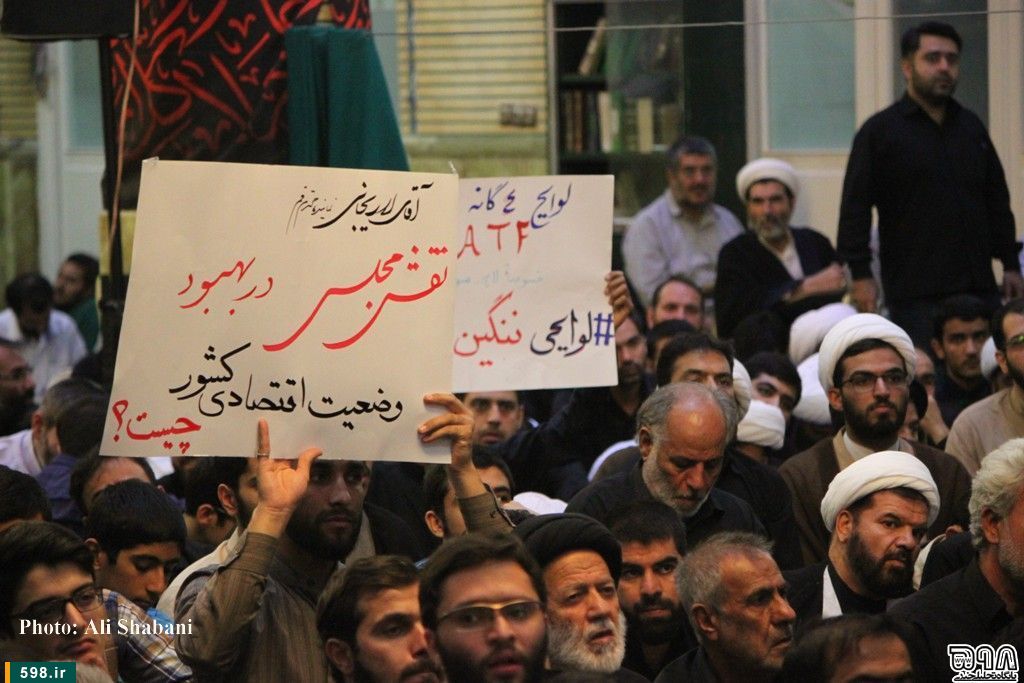 آقای لاریجانی نماینده محترم قم
نقش مجلس در بهبود
وضعیت اقتصادی کشور
چیست؟
لوایح ۴ گانه
ATF
#لوایحی ننگین
Photo: Ali Shabani
598.ir